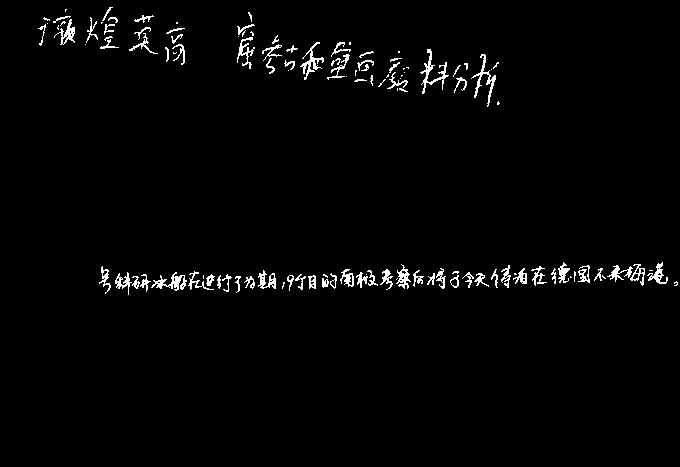 敦煌莫高窟参古和壁画磨料分析.
号科研冰船在进行了为期19个月的南极考察后将于今天停泊在德国不来梅港。